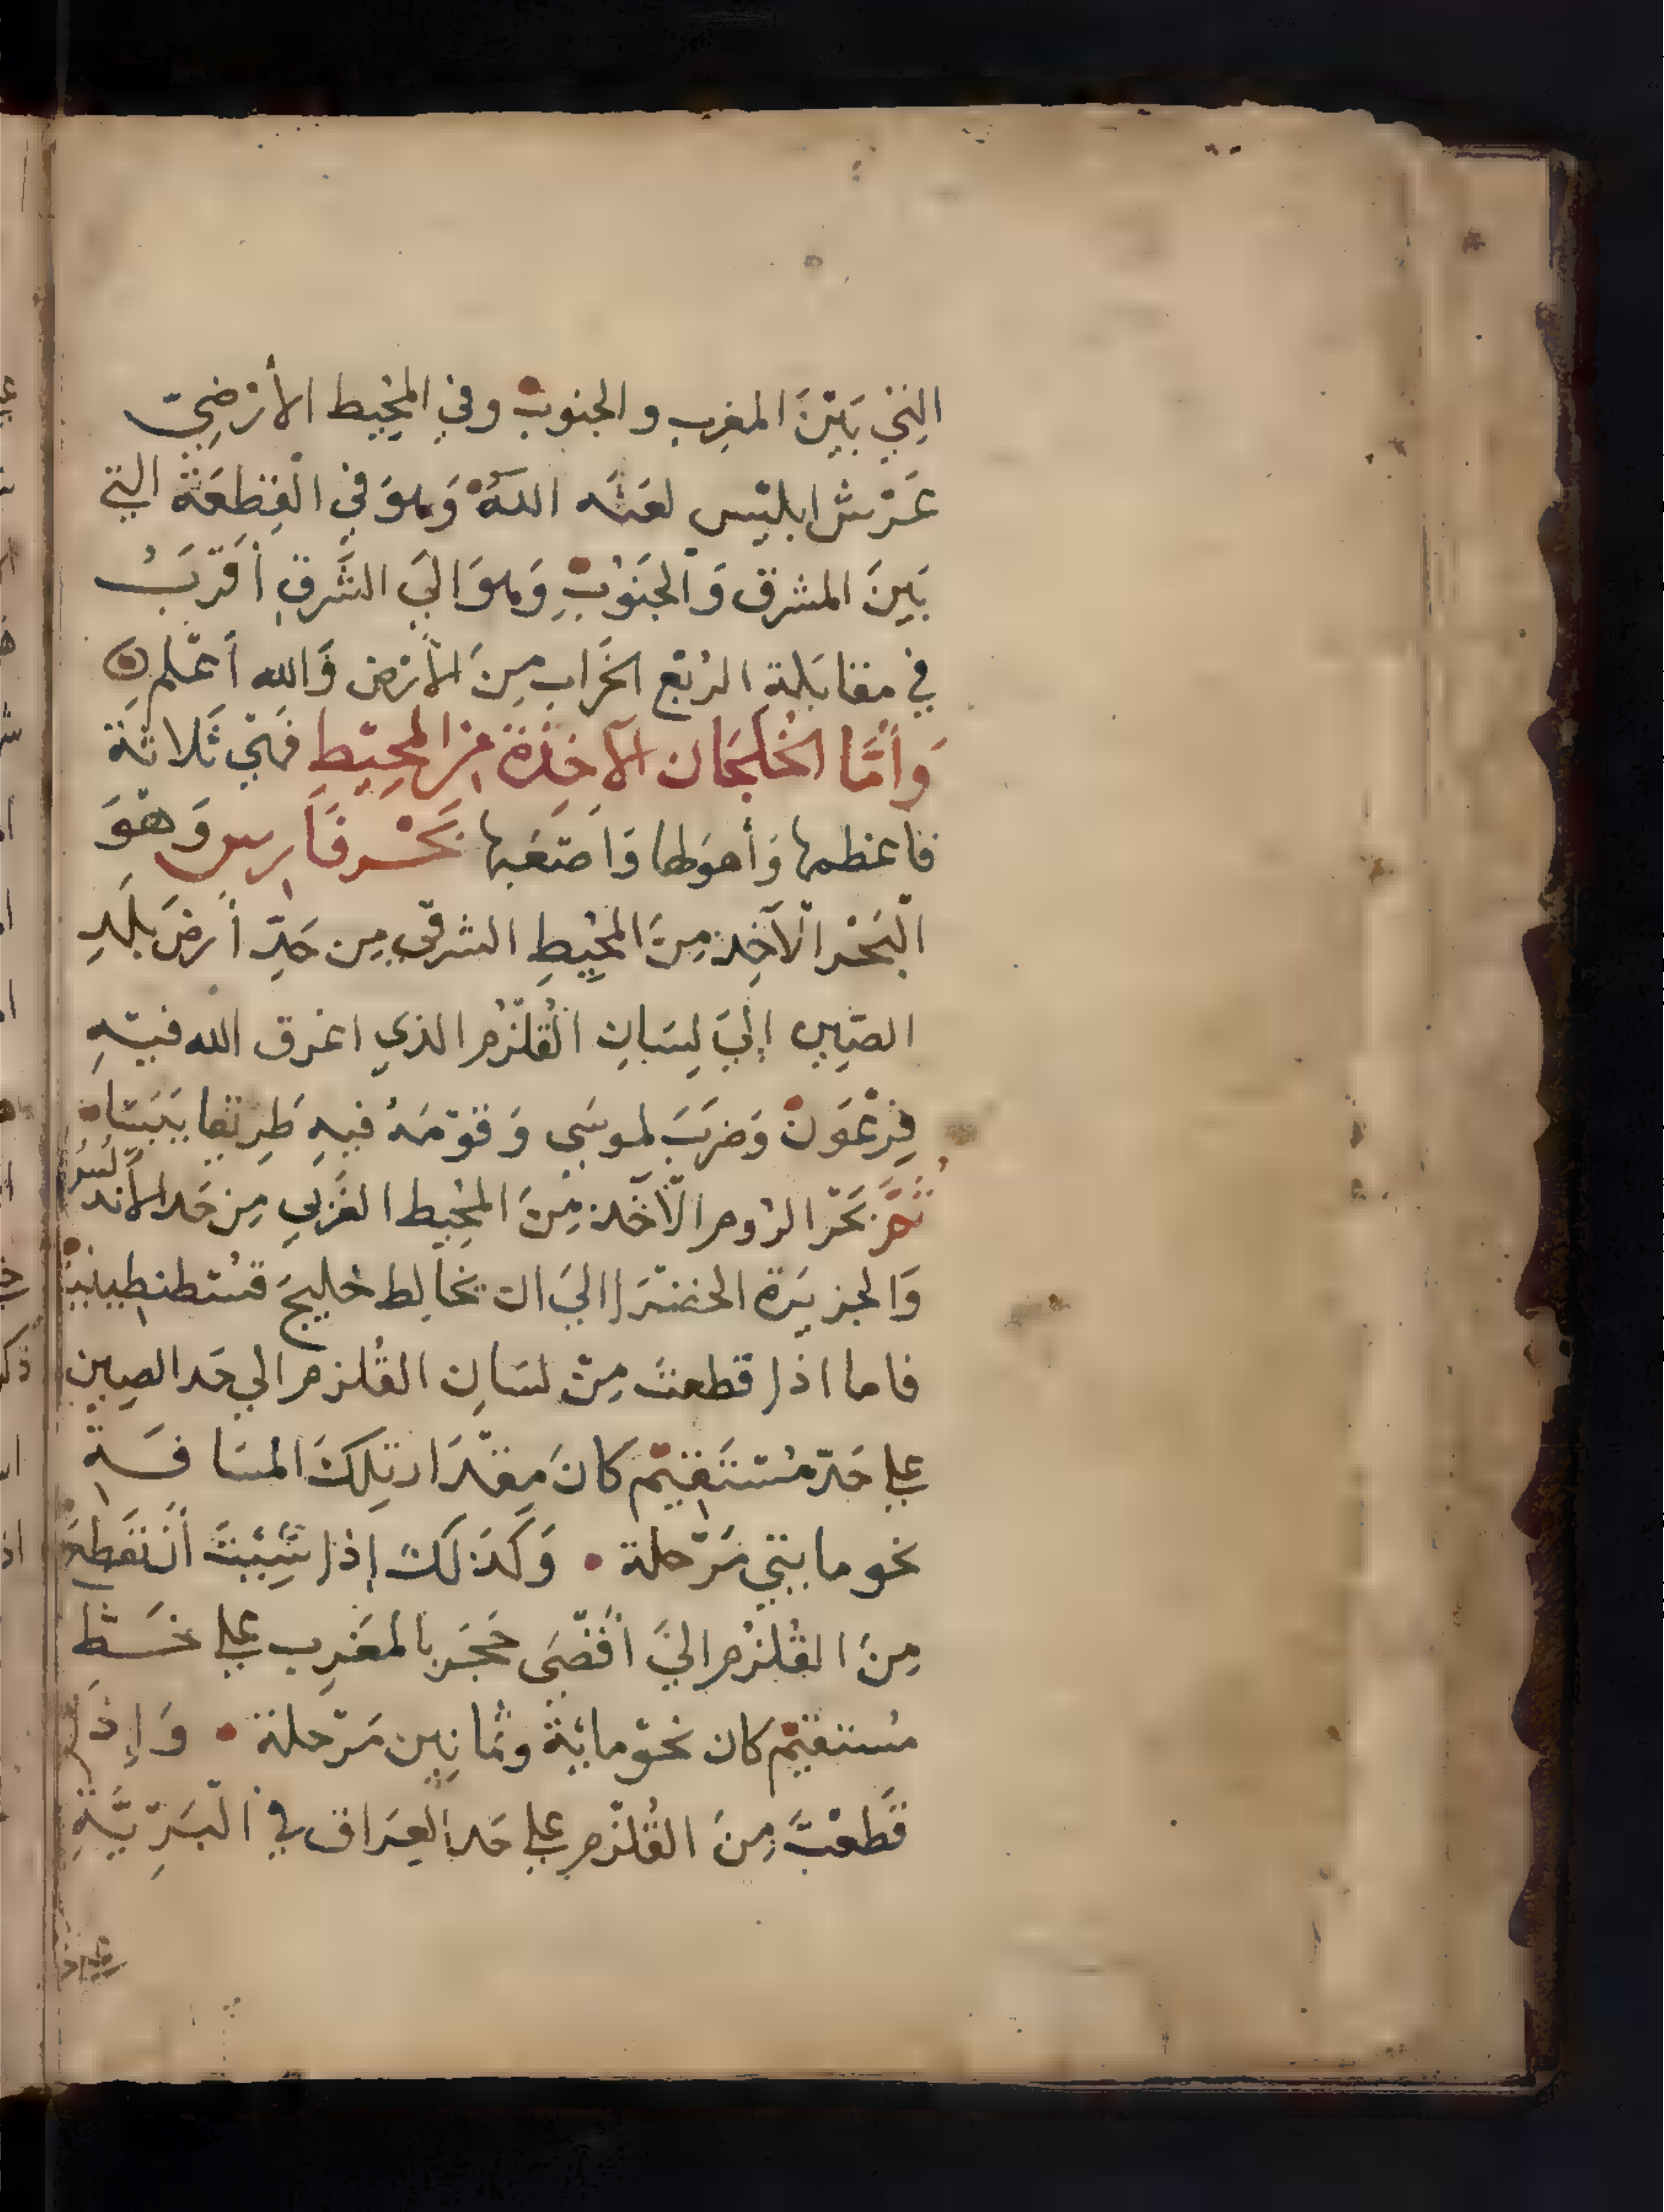 التي بَيْنَ المغرِب والجنوب وفي المحِيط الأرْضِيّ
عَرْش ابليْس لعنَه اللهُ وَهوَ في القِطعَة التي
بَينَ المشرق وَالجَنوُبِ وَهوَ اليَ الشَّرقِ أقرَبُ
في مقابَلة الرُبْع الخرَاب مِنَ الأرْض وَالله أعْلم
وَأمَّا الخُلجَان الآخِذَة مِن المحِيْطِ فهْيَ ثَلاثة
فاعظمها وَأهوَلها وَاصْعَبها بَحْر فَارس وَهْوَ
البَحْر الآخِذ مِنَ المحِيطِ الشرقي مِن حَدِّ أرضَ بلَدِ
الصِين إليَ لِسَانِ القُلْزُم الذي اغرق الله فيْهِ
فِرْعَوْن وَضرَبَ لموسَي وَقوْمَهُ فيهِ طَرِيْقا يَبَسًا
ثمَّ بَحْر الرُوم الآخَذ مِنَ المحِيط الغَربي مِن حَد الأندلُسُ
وَالجزيرَة الخضْرَا اليَ ان يخالِط خليجَ قسْطنطِينيَة
فاما اذا قطعتَ مِنْ لسَانِ القُلزم الي حَد الصِين
علي حَدّ مُسْتَقِيْم كانَ مِقْدَار تِلكَ المسَافَةِ
نحو مايتي مَرْحلة وَكَذلكَ إذا شِئتَ أنْ تَقطعَ
مِنَ القُلزُم اليَ أقْصَى حَجَر بالمغَرِب علي خَطّ
مُستقيْم كان نحوْ مائة وثمانِين مَرْحلة وَإذَا
قَطعْتَ مِنَ القُلْزم علي حَد العِرَاق في البَرِّيَّةِ